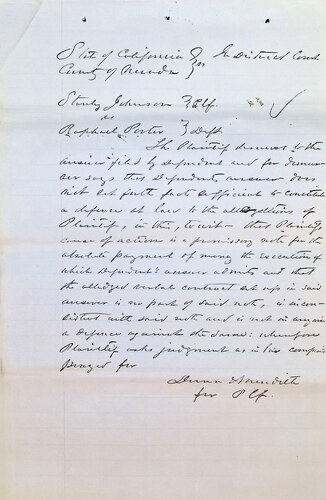 State of California } ss In District Court
County of Nevada }
Stanly Johnson } Plf.
vs
Raphael Porter } Deft
The Plaintiff demurs to the
answer filed by Defendant and for demur-
rer says that Defendants answer does
not set forth facts sufficient to constitute
a defence at law to the allegations of
Plaintiff, in this, to wit - that Plaintiffs
cause of action is a promissory note for the
absolute payment of money the execution of
which Defendants answer admits and that
the alledged verbal contract set up in said
answer is no part of said note, is incon-
sistent with said note and is not in any
a defence against the same: wherefore
Plaintiff asks judgment as in his complaint
prayed for
Dunn &
for Plf.